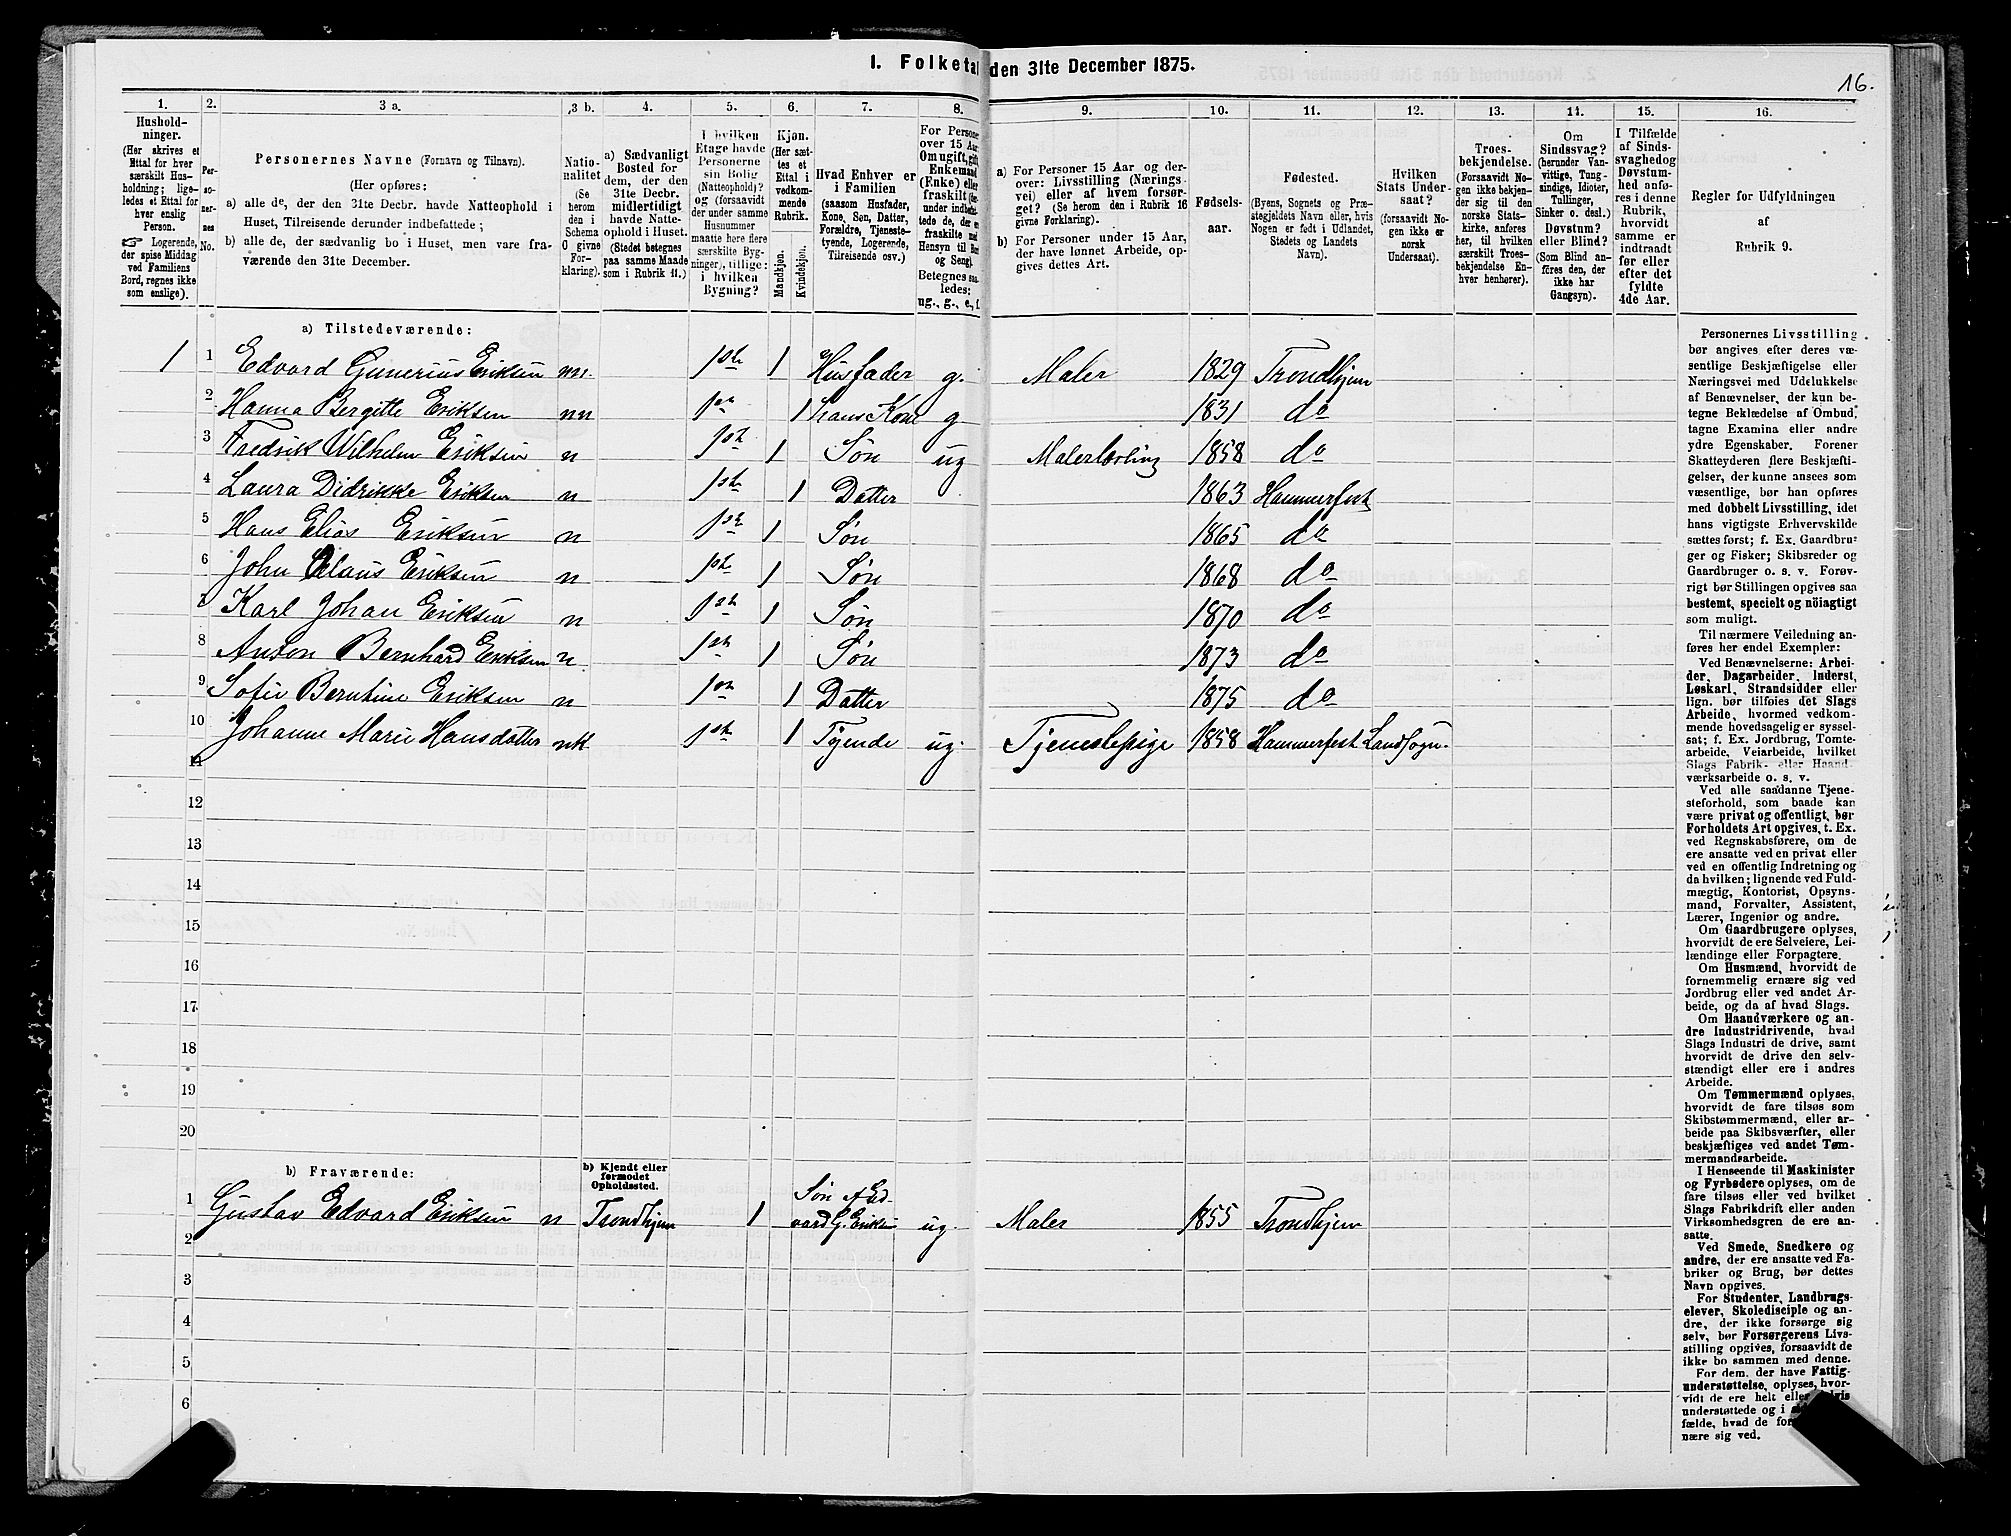 I. Folketal den 31te December 1875.
16.
1. 2. 3 a. 3 b. 4. 5. 6. 7. 8. 9. 10. 11. 12. 13. 14. 15. 16.
Hushold-
ninger.
(Her skrives et
Ettal for hver
særskilt Hus-
holdning; lige-
ledes et Ettal for
hver enslig
Person.
☞ Logerende,
der spise Middag
ved Familiens
Bord, regnes ikke
som enslige).
Per-
so-
ner-
nes
No.
Personernes Navne (Fornavn og Tilnavn).
(Her opføres:
a) alle de, der den 31te Decbr. havde Natteophold i
Huset, Tilreisende derunder indbefattede;
b) alle de, der sædvanlig bo i Huset, men vare fra-
værende den 31te December.
Natio-
nalitet
(Se
herom
den i
Schema
O givne
For-
klaring).
a) Sædvanligt
Bosted for
dem, der den
31te Decbr.
midlertidigt
havde Natte-
ophold i Huset.
(Stedet betegnes
paa samme Maade
som i Rubrik 11.)
I hvilken
Etage havde
Personerne
sin Bolig
(Natteophold)?
og (forsaavidt
der under samme
Husnummer
maatte høre flere
særskilte Byg-
ninger), tillige:
i hvilken
Bygning?
Kjøn.
(Her sæt-
tes et
Ettal i
vedkom-
mende
Rubrik.
Mandkjøn.
Kvindekjøn.
Hvad Enhver er
i Familien
(saasom Husfader,
Kone, Søn, Datter,
Forældre, Tjeneste-
tyende, Logerende,
Tilreisende osv.)
For Personer
over 15 Aar:
Om ugift, gift,
Enkemand
(Enke) eller
fraskilt
Betegnes saa-
ledes:
ug., g., e., f.
a) For Personer 15 Aar og der-
over: Livsstilling (Nærings-
vei) eller af hvem forsør-
get? (Se herom den i Rubrik 16
givne Forklaring).
b) For Personer under 15 Aar,
der have lønnet Arbeide, op-
gives dettes Art.
Fødsels-
aar.
Fødested.
(Byens, Sognets og Præ-
stegjeldets Navn eller, hvis
Nogen er født i Udlandet,
Stedets og Landets
Navn).
Hvilken
Stats Under-
saat?
(forsaavidt No-
gen ikke er
norsk
Undersaat).
Troes-
bekjendelse.
(Forsaavidt No-
gen ikke bekjen-
der sig til den
norske Stats-
kirke, anføres
her, til hvilken
særskilt Troes-
bekjendelse En-
hver henhører).
Om
Sindssvag?
(herunder Van-
vittige, Tung-
sindige, Idioter,
Tullinger,
Sinker o. desl.)
Døvstum?
eller Blind?
(Som Blind an-
føres den, der
ikke har
Gangsyn).
I Tilfælde
af Sinds-
svaghed og
Døvstum-
hed anfø-
res i denne
Rubrik,
hvorvidt
samme er
indtraadt
før eller
efter det
fyldte
4de Aar.
Regler for Udfyldningen
af
Rubrik 9.
a) Tilstedeværende:
1 1 Edvard Gunerius Eriksen nn. 1ste 1 Husfader g. Maler 1829 Trondhjem
2 Hanna Bergitte Eriksen nn 1ste 1 hans Kone g 1831 do
3 Fredrik Wilhelm Eriksen n 1ste 1 Søn ug Malerlærling 1858 do
4 Laura Didrikke Eriksen n 1ste 1 Datter 1863 Hammerfest
5 Hans Elias Eriksen n 1ste 1 Søn 1865 do
6 John Claus Eriksen n 1ste 1 Søn 1868 do
7 Karl Johan Eriksen n 1ste 1 Søn 1870 do
8 Anton Bernhard Eriksen n. 1ste 1 Søn 1873 do
9 Sofie Berntine Eriksen n 1ste 1 Datter 1875 do
10 Johanne Marie Hansdatter nk 1ste 1 Tyende ug. Tjenestepige 1858 Hammerfest Landsogn.
11
12
13
14
15
16
17
18
19
20
b) Fraværende:
b) Kjendt eller
formodet
Opholdssted.
1 Gustav Edvard Eriksen n Trondhjem 1 Søn af Ed-
vard G. Eriksen ug. Maler 1855 Trondhjem
2
3
4
5
6
Personernes Livsstilling
bør angives efter deres væ-
sentlige Beskjæftigelse eller
Næringsvei med Udelukkelse
af Benævnelser, der kun be-
tegne Beklædelse af Ombud,
tagne Examina eller andre
ydre Egenskaber. Forener
Skatteyderen flere Beskjæfti-
gelser, der kunne ansees som
væsentlige, bør han opføres
med dobbelt Livsstilling, idet
hans vigtigste Erhvervskilde
sættes først; f. Ex. Gaardbru-
ger og Fisker; Skibsreder og
Gaardbruger o. s. v. Forøv-
rigt bør Stillingen opgives saa
bestemt, specielt og nöiagtigt
som muligt.
Til nærmere Veiledning an-
føres her endel Exempler:
Ved Benævnelserne: Arbei-
der, Dagarbeider, Inderst,
Løskarl, Strandsidder eller
lign. bør tilføies det Slags
Arbeide, hvormed vedkom-
mende hovedsagelig er syssel-
sat; f. Ex. Jordbrug, Tomte-
arbeide, Veiarbeide, hvilket
Slags Fabrik- eller Haand-
værksarbeide o. s. v.
Ved alle saadanne Tjene-
steforhold, som baade kan
være privat og offentligt, bør
Forholdets Art opgives, t. Ex.
ved Regnskabsførere, om de
ere ansatte ved en privat eller
ved en offentlig Indretning og
da hvilken; lignende ved Fuld-
mægtig, Kontorist, Opsyns-
mand, Forvalter, Assistent,
Lærer, Ingeniør og andre.
Om Gaardbrugere oplyses,
hvorvidt de ere Selveiere, Lei-
lændinge eller Forpagtere.
Om Husmænd, hvorvidt de
fornemmelig ernære sig ved
Jordbrug eller ved andet Ar-
beide, og da af hvad Slags.
Om Haandværkere og an-
dre Industridrivende, hvad
Slags Industri de drive, samt
hvorvidt de drive den selv-
stændigt eller ere i andres
Arbeide.
Om Tømmermænd oplyses,
hvorvidt de fare tilsøs som
Skibstømmermænd, eller ar-
beide paa Skibsværfter, eller
beskjæftiges ved andet Tøm-
mermandsarbeide.
I Henseende til Maskinister
og Fyrbødere oplyses, om de
fare tilsøs eller ved hvilket
Slags Fabrikdrift eller anden
Virksomhedsgren de ere an-
satte.
Ved Smede, Snedkere og
andre, der ere ansatte ved Fa-
briker og Brug, bør dettes
Navn opgives.
For Studenter, Landbrugs-
elever, Skoledisciple og an-
dre, der ikke forsørge sig
selv, bør Forsørgerens Livs-
stilling opgives, forsaavidt de
ikke bo sammen med denne.
For dem, der have Fattig-
understøttelse, oplyses, hvor-
vidt de ere helt eller delvis
understøttede og i
fælde, hvad de
nære sig ved.